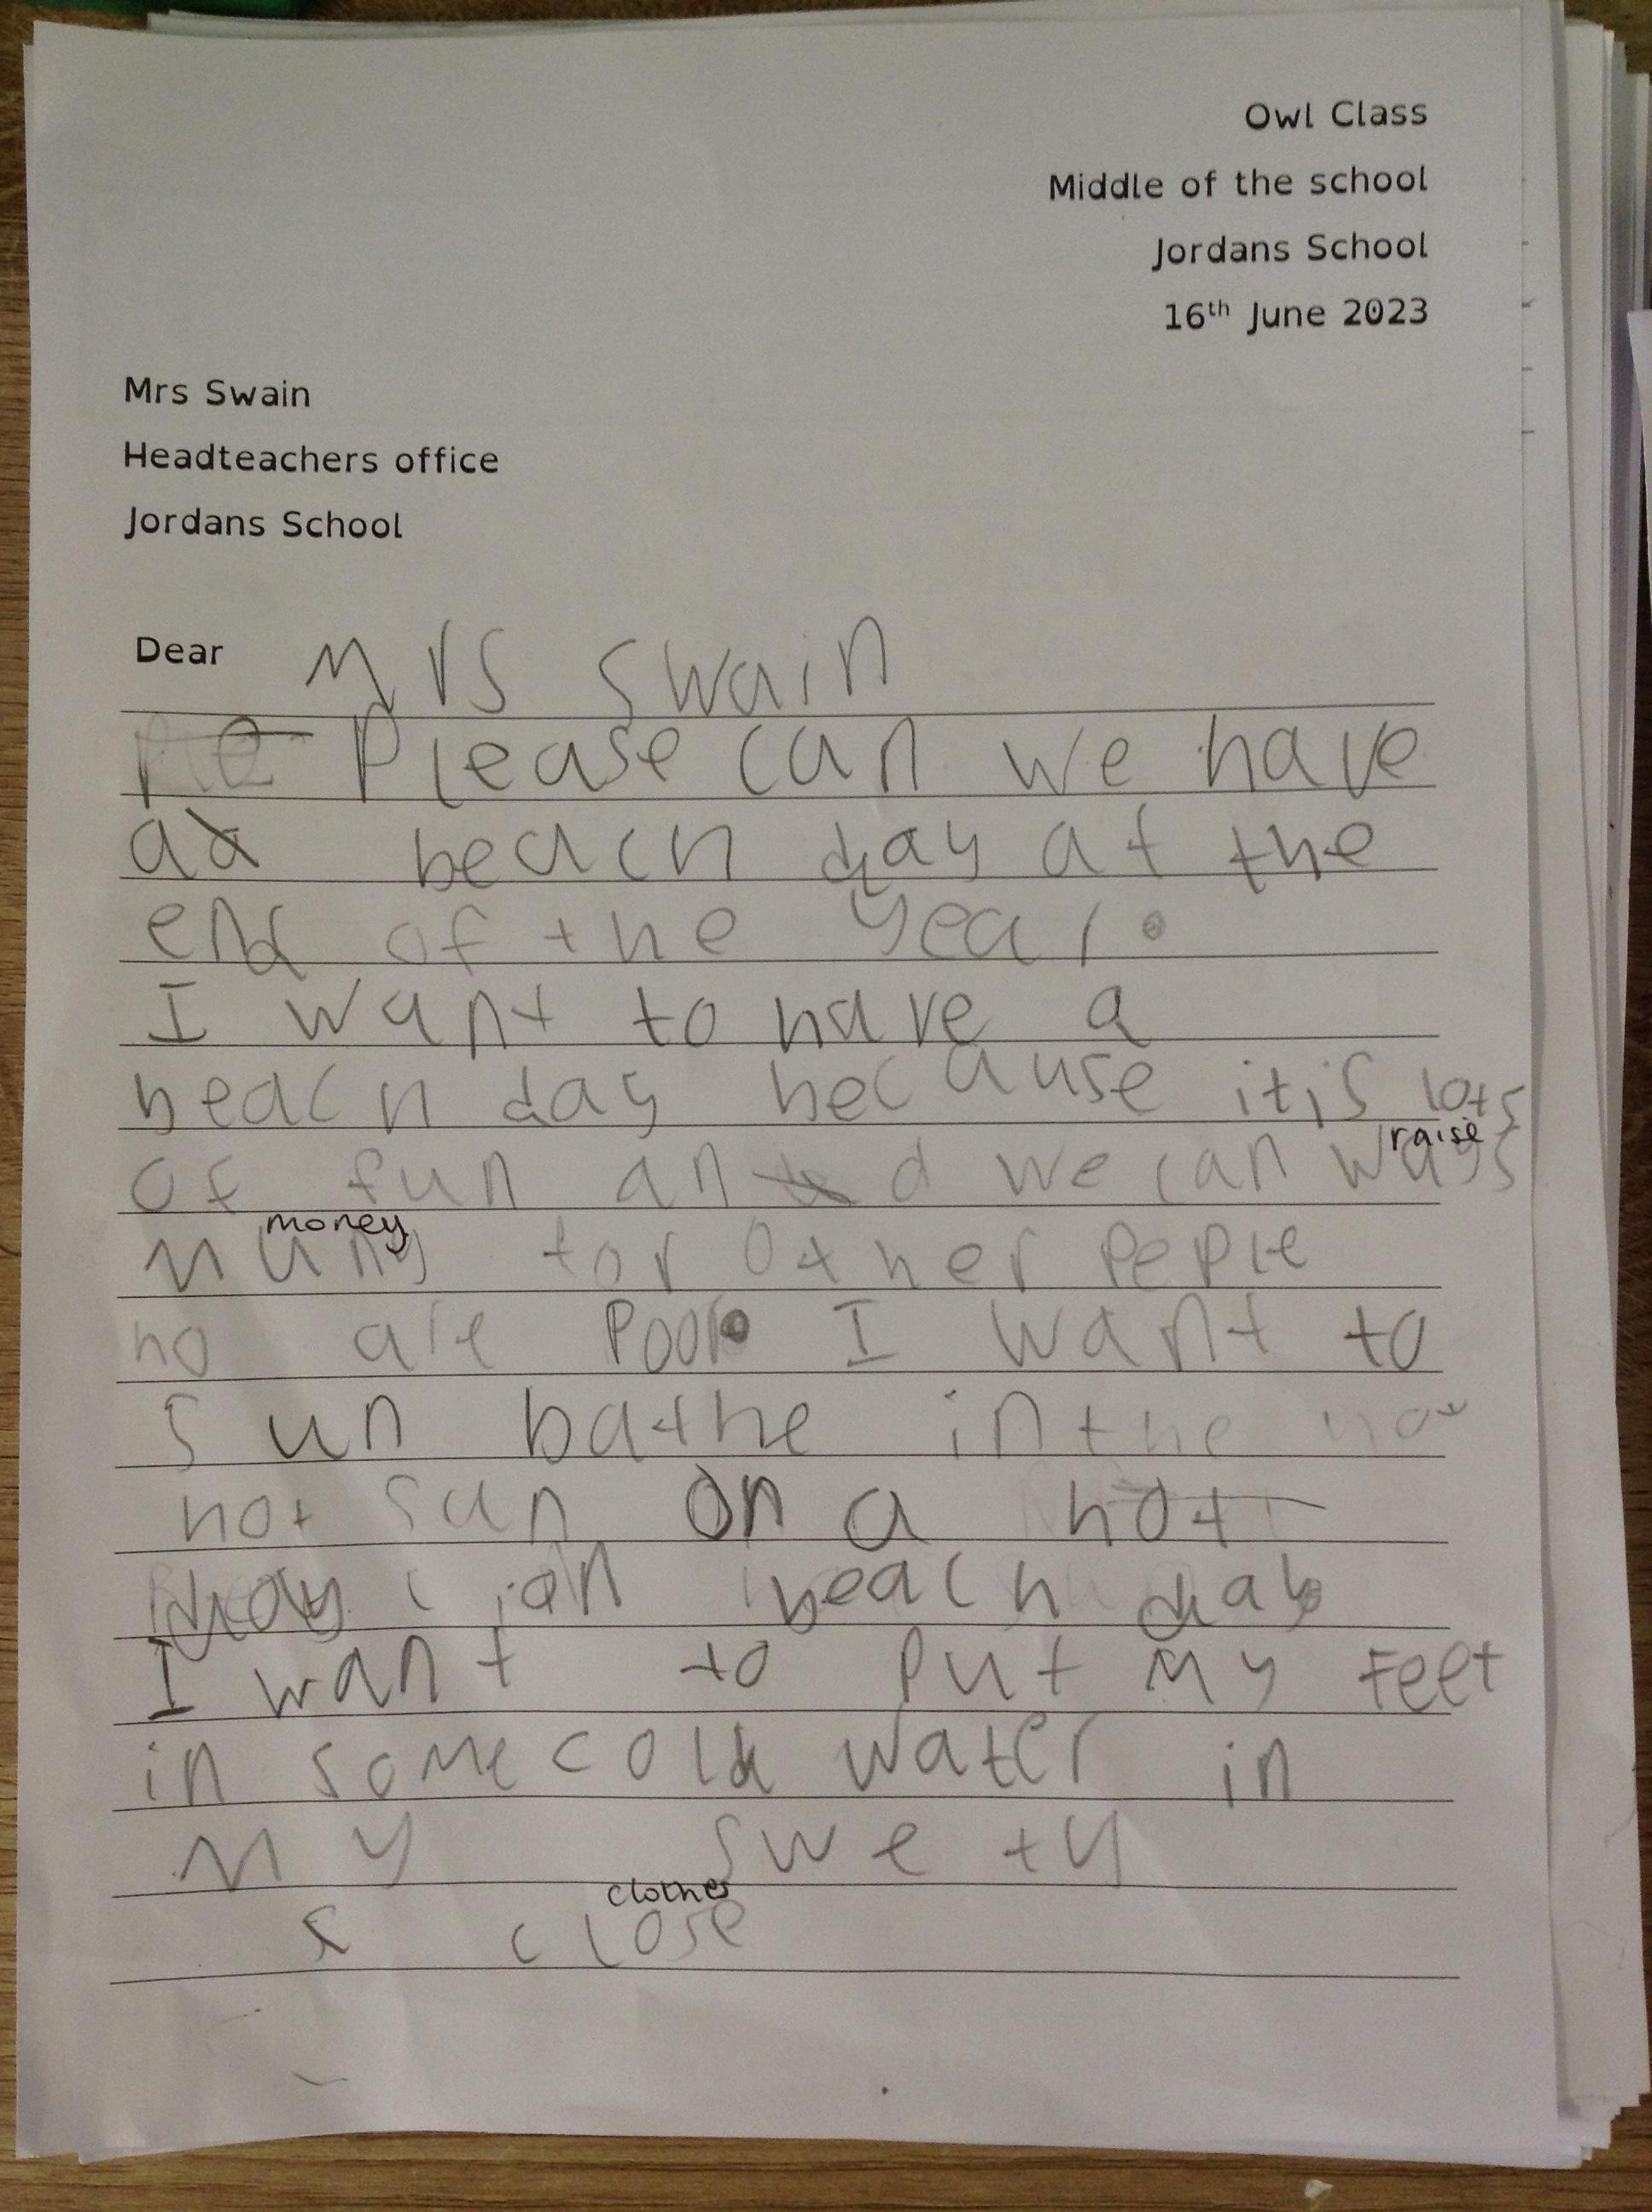 Owl Class
Middle of the school
Jordans School
16th June 2023
Mrs Swain
Headteachers office
Jordans School
Dear Mrs Swain
Please can we have
a beach day at the
end of the year.
I want to have a
beach day because it is lots
raise
of fun and we can ways
money
muny for other peple
ho are poor. I want to
sun bathe in the hot
hot sun on a hot
day on beach day
I want to put my feet
in some cold water in
my swety
clothes
close